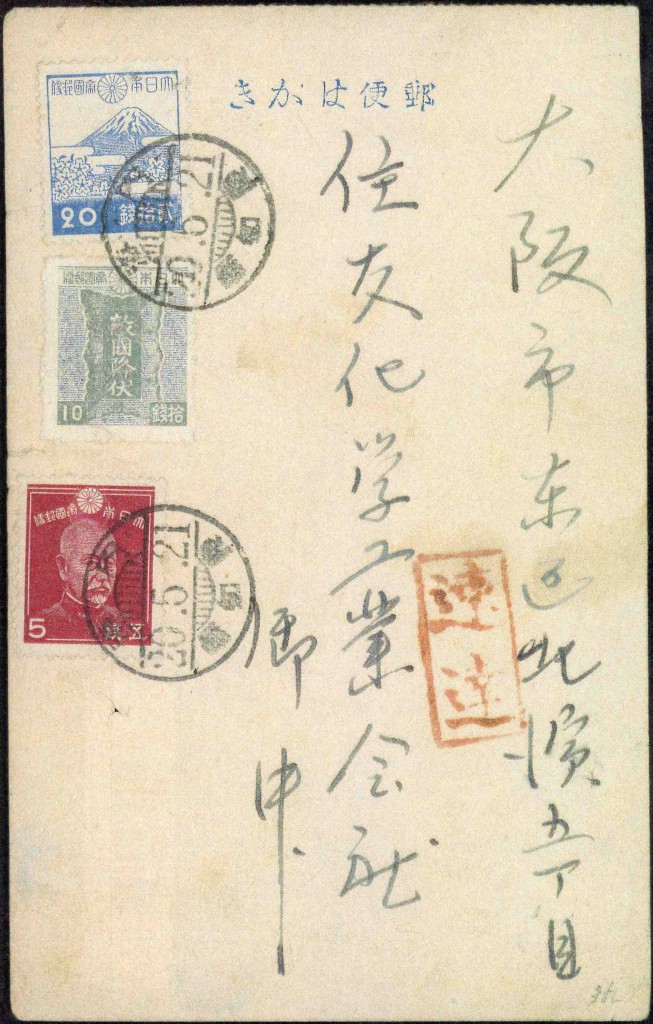 郵便はがき
大阪市東区北濱五丁目
住友化学工業会社
御中
速達
大日本帝國郵便
20 銭拾貳
大日本帝國郵便
敵國降伏
10 銭拾
大日本帝國郵便
5 銭五
20.5.21
20.5.21